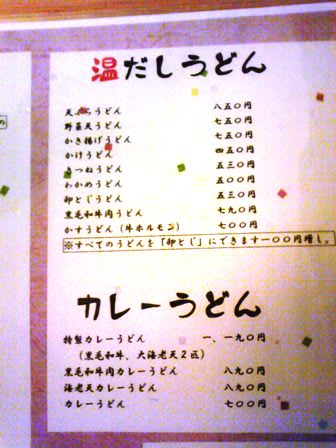 温だしうどん
天ぷらうどん 八五〇円
野菜天うどん 七五〇円
かき揚げうどん 七五〇円
かけうどん 四五〇円
きつねうどん 五三〇円
わかめうどん 五〇〇円
卵とじうどん 五三〇円
黒毛和牛肉うどん 七九〇円
かすうどん(牛ホルモン) 七〇〇円
※すべてのうどんを「卵とじ」にできます一〇〇円増し。
カレーうどん
特製カレーうどん 一、一九〇円
(黒毛和牛、大海老天2匹)
黒毛和牛肉カレーうどん 八九〇円
海老天カレーうどん 八九〇円
カレーうどん 七〇〇円